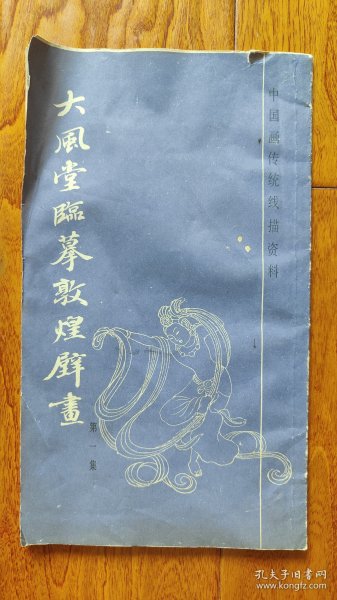 中国画传统线描资料
大風堂臨摹敦煌壁畫
第一集
孔夫子旧书网
www.kongfz.com